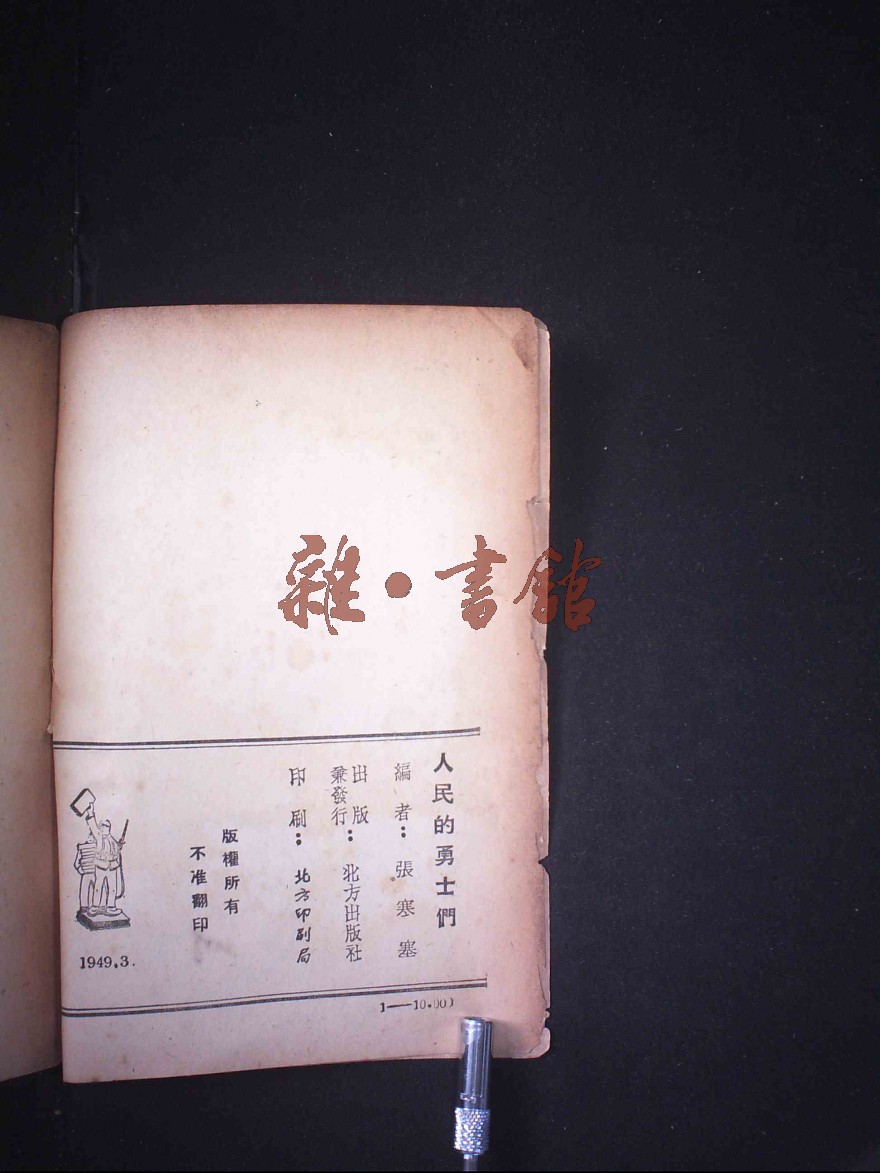 雜·書館
人民的勇士們
編者：張寒塞
出版兼發行：北方出版社
印刷：北方印刷局
版權所有
不准翻印
1949.3.
1—10.00)